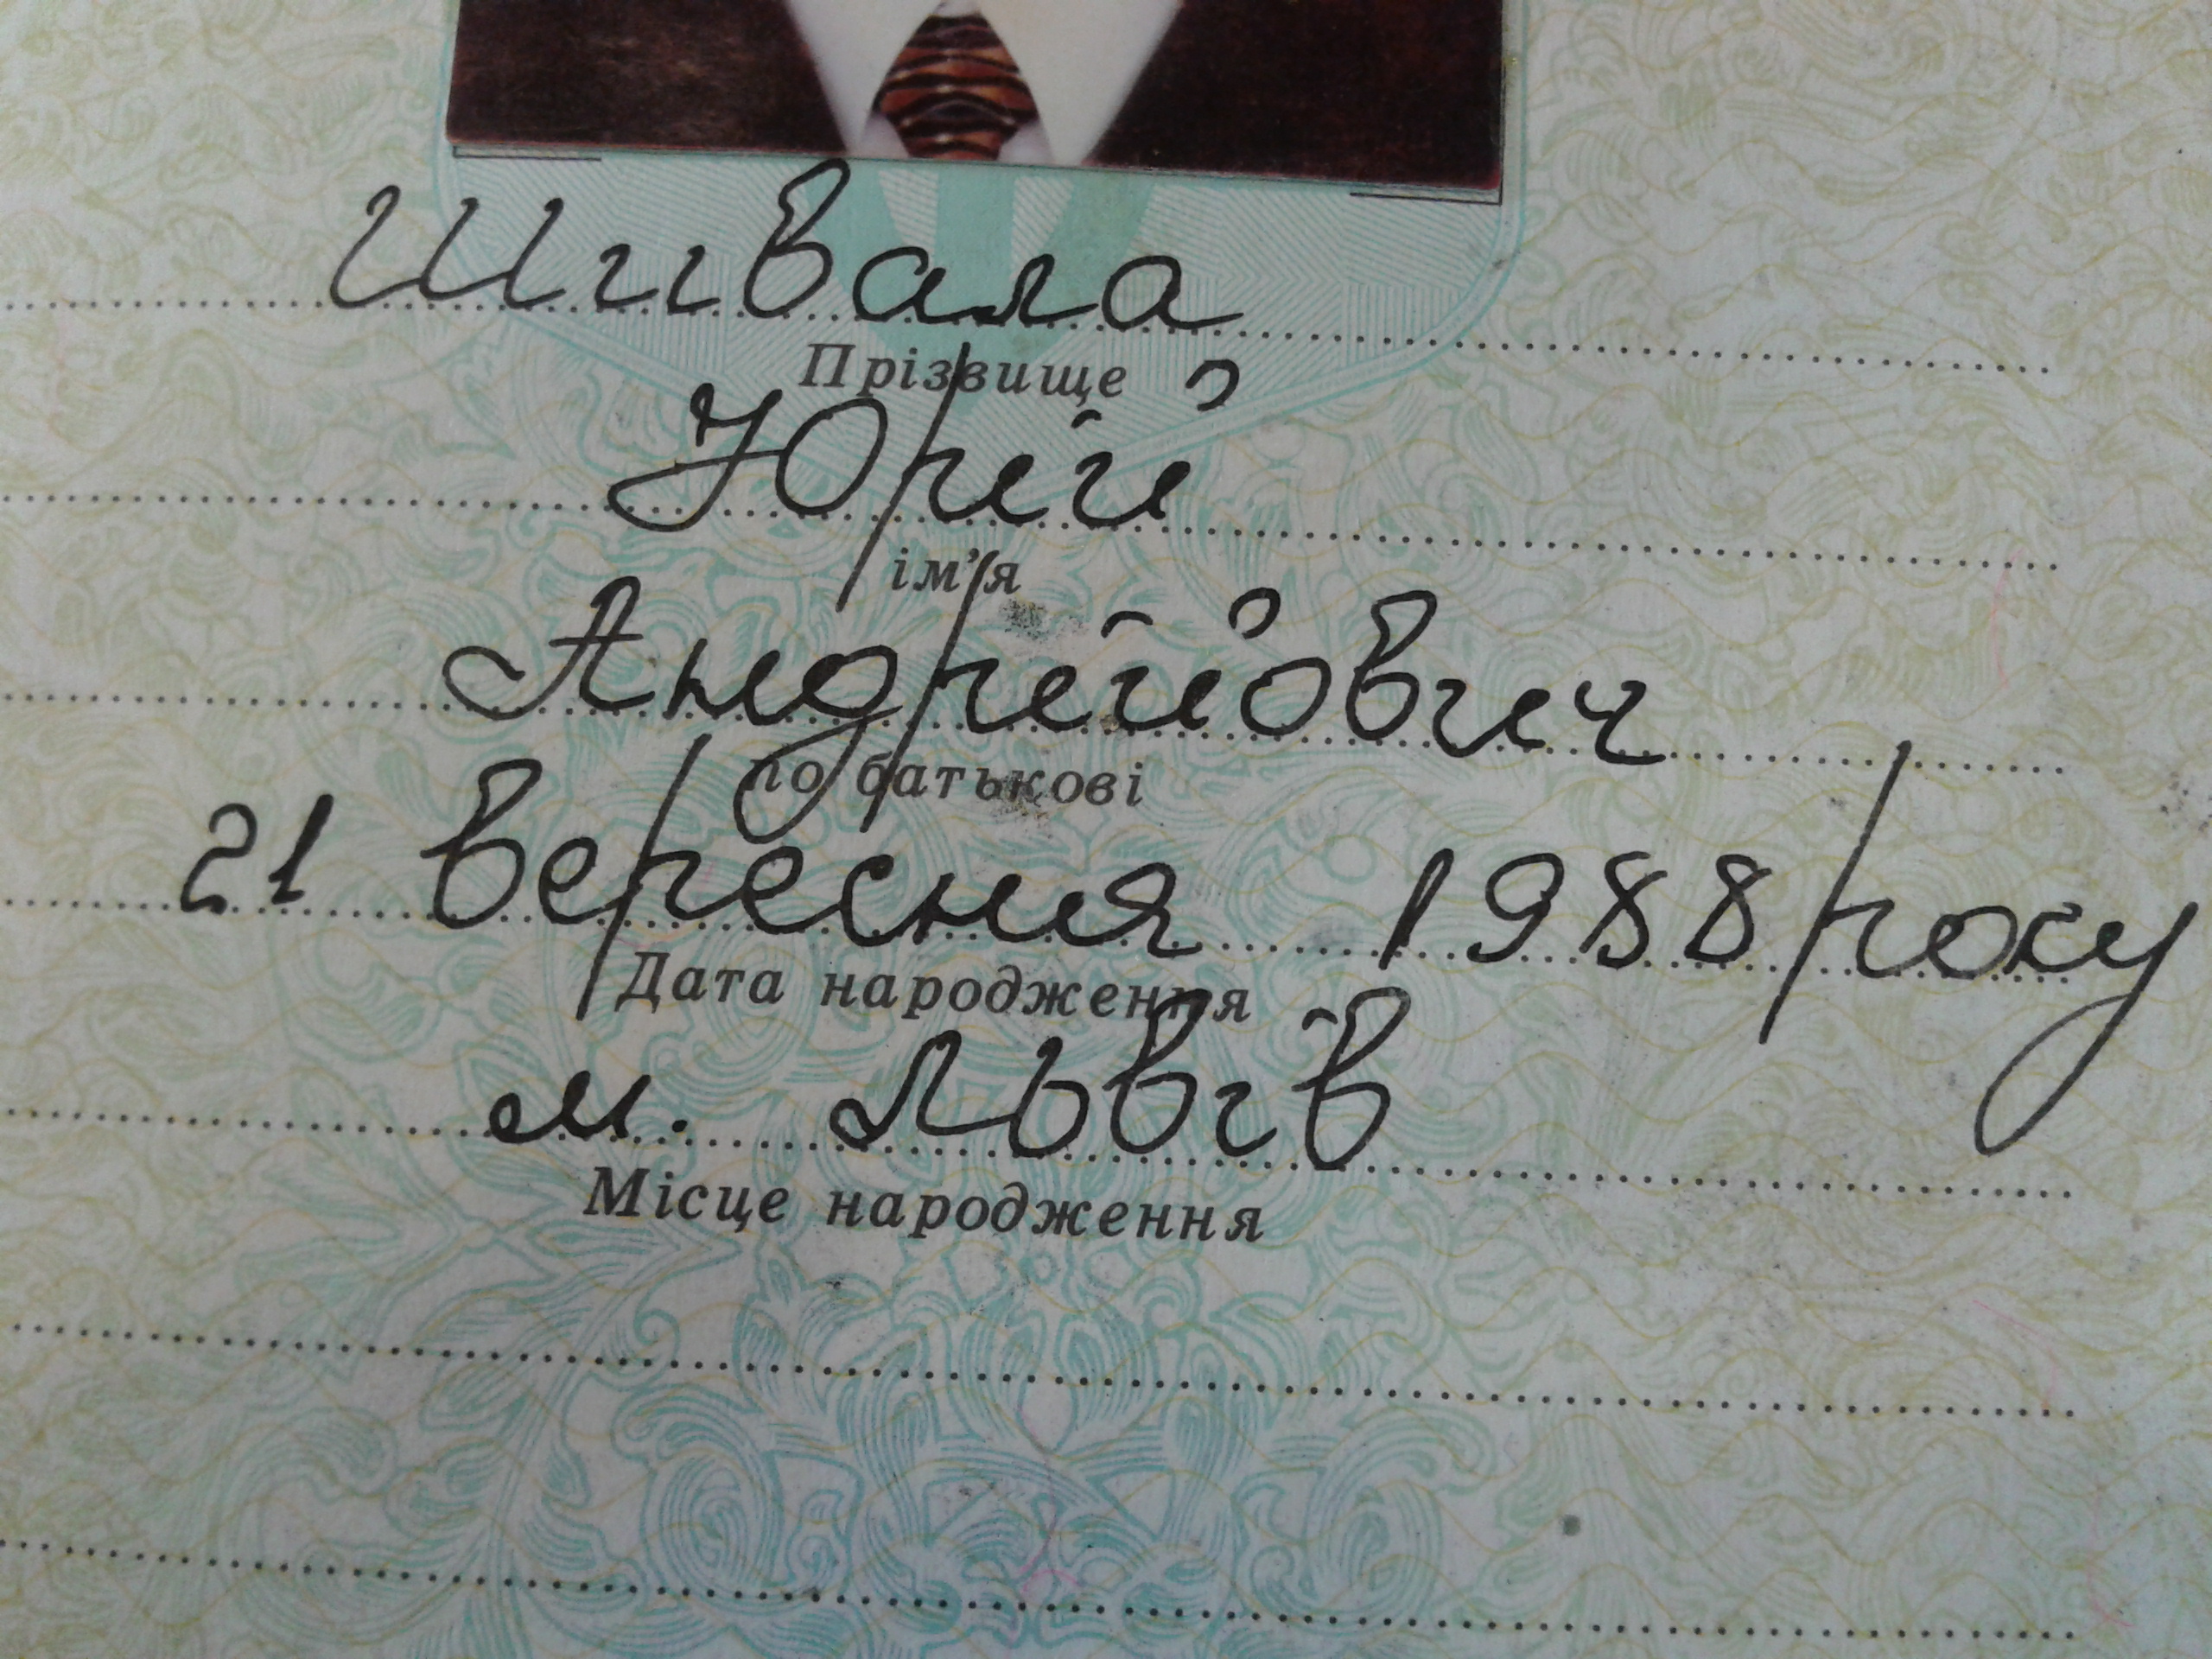 Шивала
Прізвище
Юрій
ім'я
Андрійович
по батькові
21 вересня 1988 року
Дата народження
м. Львів
Місце народження